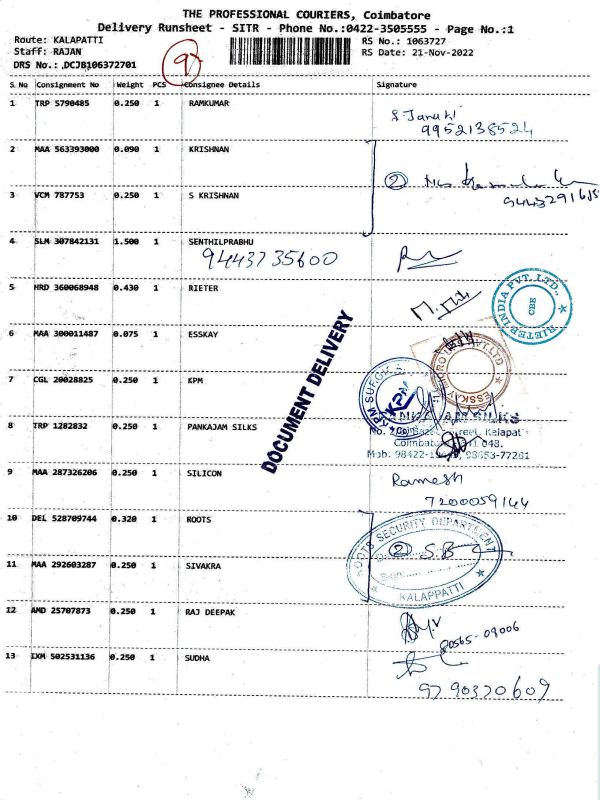 THE PROFESSIONAL COURIERS, Coimbatore
Delivery Runsheet - SITR - Phone No.:0422-3505555 - Page No.:1
Route: KALAPATTI
Staff: RAJAN
DRS No.: .DCJB106372701
RS No.: 1063727
RS Date: 21-Nov-2022
S.No Consignment No Weight PCS Consignee Details Signature
1 TRP 5790485 0.250 1 RAMKUMAR
S. Janaki
9952138524
2 MAA 563393000 0.090 1 KRISHNAN
2
3 VCM 787753 0.250 1 S KRISHNAN
4 SLM 307842131 1.500 1 SENTHILPRABHU
9443735600
5 HRD 360068948 0.430 1 RIETER
RIETER INDIA PVT. LTD.,
CBE
6 MAA 300011487 0.075 1 ESSKAY
7 CGL 20028825 0.250 1 KPM
KPM
8 TRP 1282832 0.250 1 PANKAJAM SILKS
9 MAA 287326206 0.250 1 SILICON
Ramesh
7200059144
10 DEL 528709744 0.320 1 ROOTS
ROOTS SECURITY DEPARTMENT
2 S.B
Sign
KALAPPATTI
11 MAA 292603287 0.250 1 SIVAKRA
12 AMD 25707873 0.250 1 RAJ DEEPAK
80565-09006
13 IXM 502531136 0.250 1 SUDHA
9790370609
DOCUMENT DELIVERY